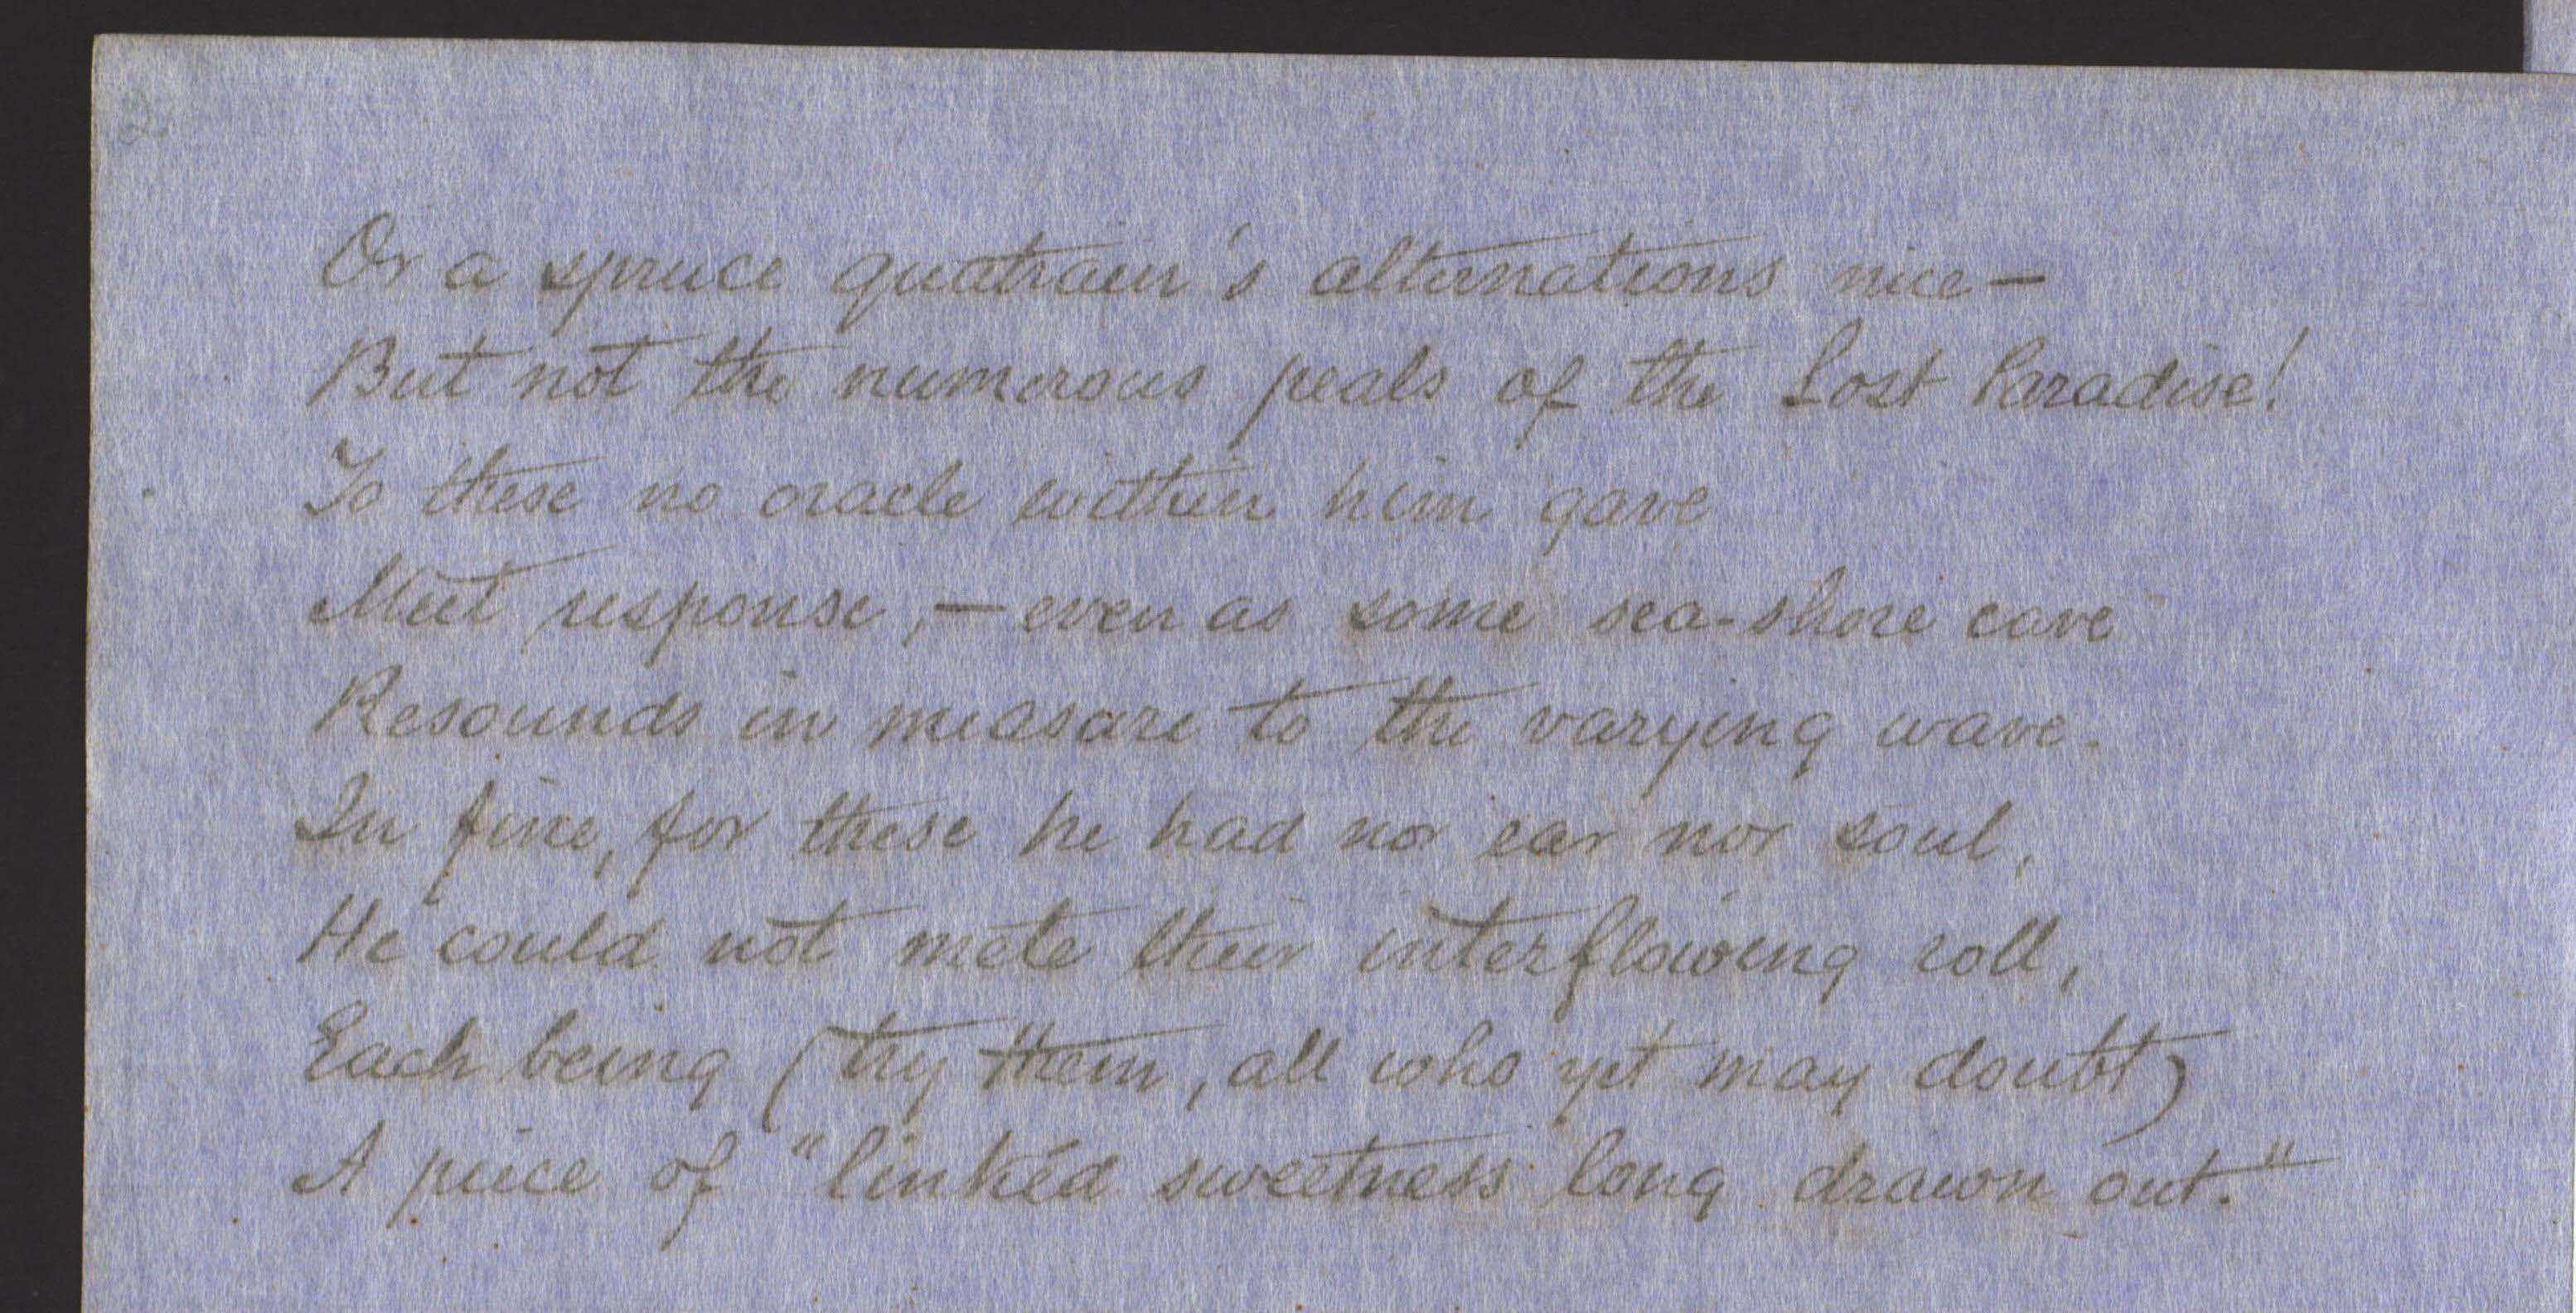 2
Or a spruce quatrain's alternations nice —
But not the numerous peals of the Lost Paradise!
To these no oracle within him gave
Meet response, — even as some sea-shore cave
Resounds in measure to the varying wave.
In fine, for these he had nor ear nor soul,
He could not mete their interflowing roll,
Each being (try them, all who yet may doubt)
A piece of "linkéd sweetness long drawn out."